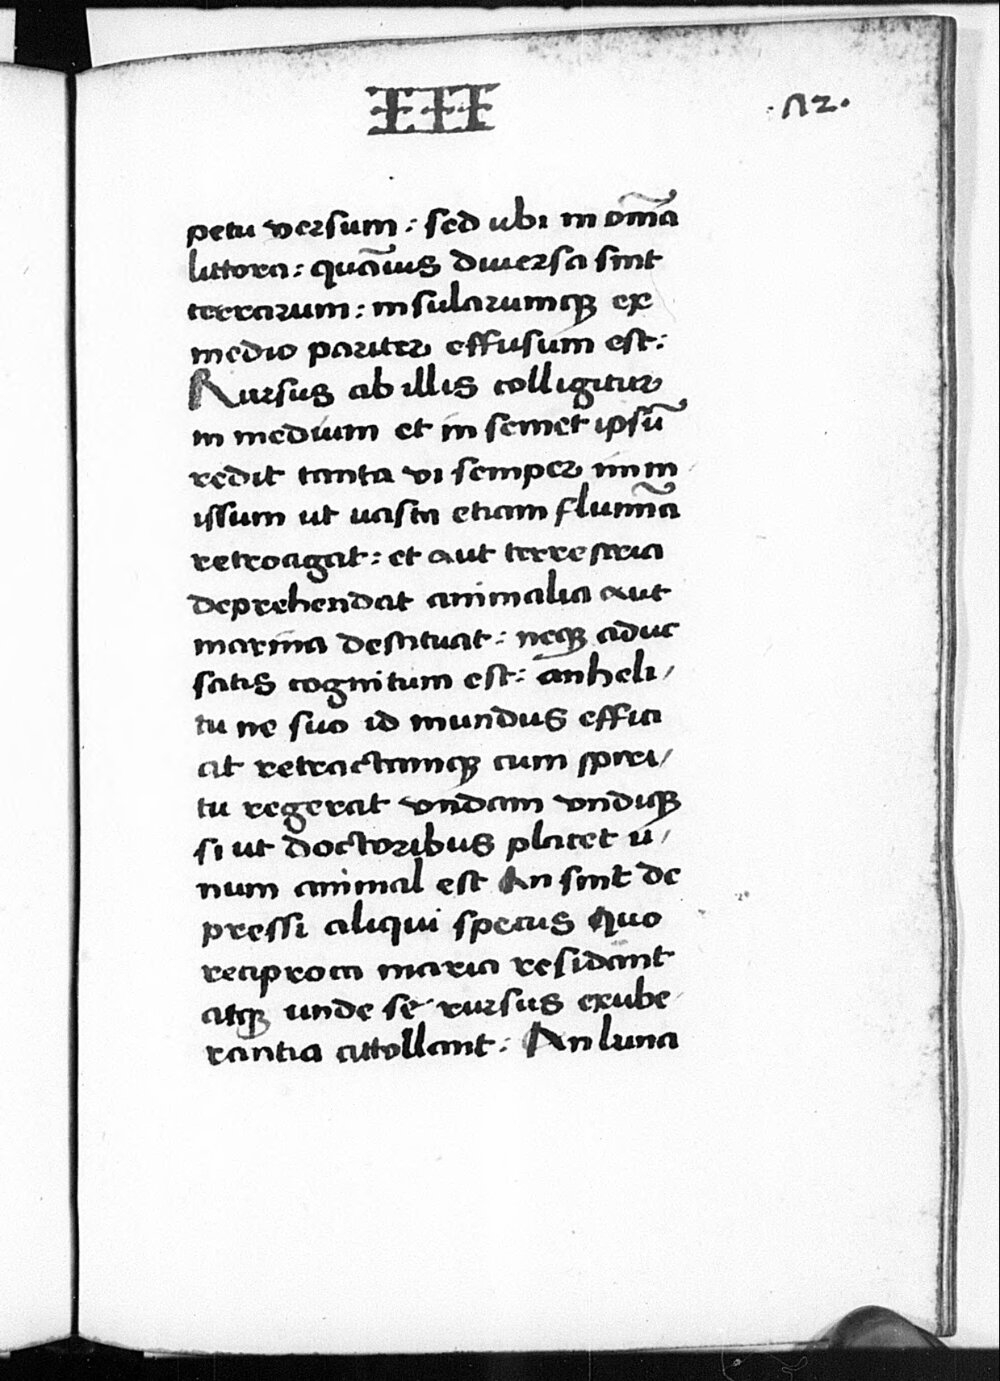 III
·92·
petu versum: sed ubi in om̃a
littora: quãuis diuersa sint
terrarum: insularumqꝫ ex
medio pariter effusum est:
Rursus ab illis colligitur
in medium et in semet ipsũ
redit tanta vi semper imm
issum ut uasta etiam flumĩa
retroagat: et aut terrestria
deprehendat animalia aut
marina destituat: neqꝫ aduc
satis cognitum est: anheli/
tu ne suo id mundus effici
at retractamqꝫ cum spiri/
tu regerat vndam vndiqꝫ
si ut doctoribus placet u/
num animal est An sint de
pressi aliqui specus Quo
reciproca maria residant
atqꝫ unde se rursus exube
rantia attollant: An luna